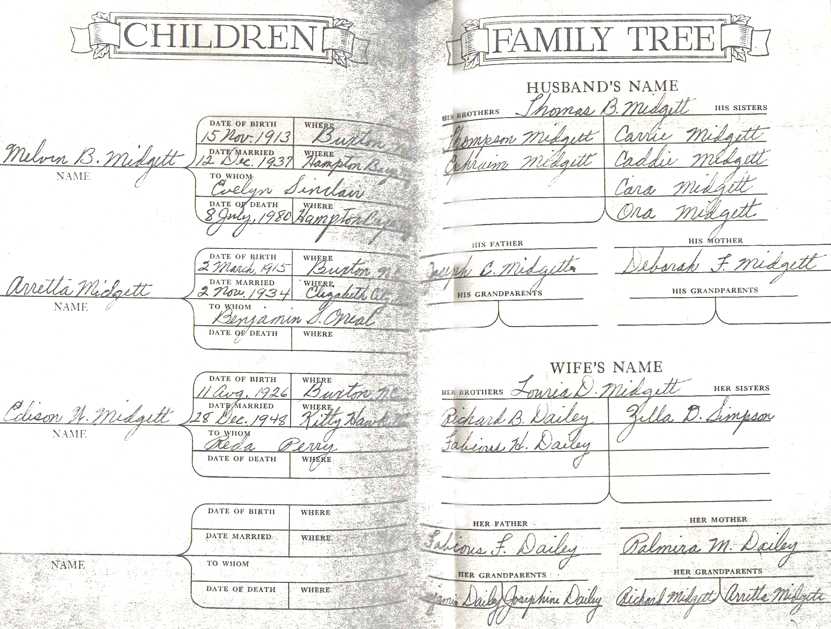 CHILDREN
Melvin B. Midgett
NAME
DATE OF BIRTH WHERE
15 Nov. 1913 Buxton
DATE MARRIED WHERE
12 Dec. 1937 Hampton
TO WHOM
Evelyn Sinclair
DATE OF DEATH WHERE
8 July, 1980 Hampton
Arretta Midgett
NAME
DATE OF BIRTH WHERE
2 March, 1915 Buxton N.C.
DATE MARRIED WHERE
2 Nov. 1934 Elizabeth City
TO WHOM
Benjamin S. Oneal
DATE OF DEATH WHERE
Edison W. Midgett
NAME
DATE OF BIRTH WHERE
11 Aug. 1926 Buxton N.C.
DATE MARRIED WHERE
28 Dec. 1948 Kitty Hawk
TO WHOM
Reda Perry
DATE OF DEATH WHERE
NAME
DATE OF BIRTH WHERE
DATE MARRIED WHERE
TO WHOM
DATE OF DEATH WHERE
FAMILY TREE
HUSBAND'S NAME
Thomas B. Midgett
HIS BROTHERS HIS SISTERS
Thompson Midgett Carrie Midgett
Ephraim Midgett Caddie Midgett
Cara Midgett
Ora Midgett
HIS FATHER HIS MOTHER
Joseph C. Midgett Deborah F. Midgett
HIS GRANDPARENTS HIS GRANDPARENTS
WIFE'S NAME
Louria D. Midgett
HER BROTHERS HER SISTERS
Richard B. Dailey Zilla D. Simpson
Fabious H. Dailey
HER FATHER HER MOTHER
Fabious F. Dailey Palmira M. Dailey
HER GRANDPARENTS HER GRANDPARENTS
Dailey Josephine Dailey Richard Midgett Arretta Midgett